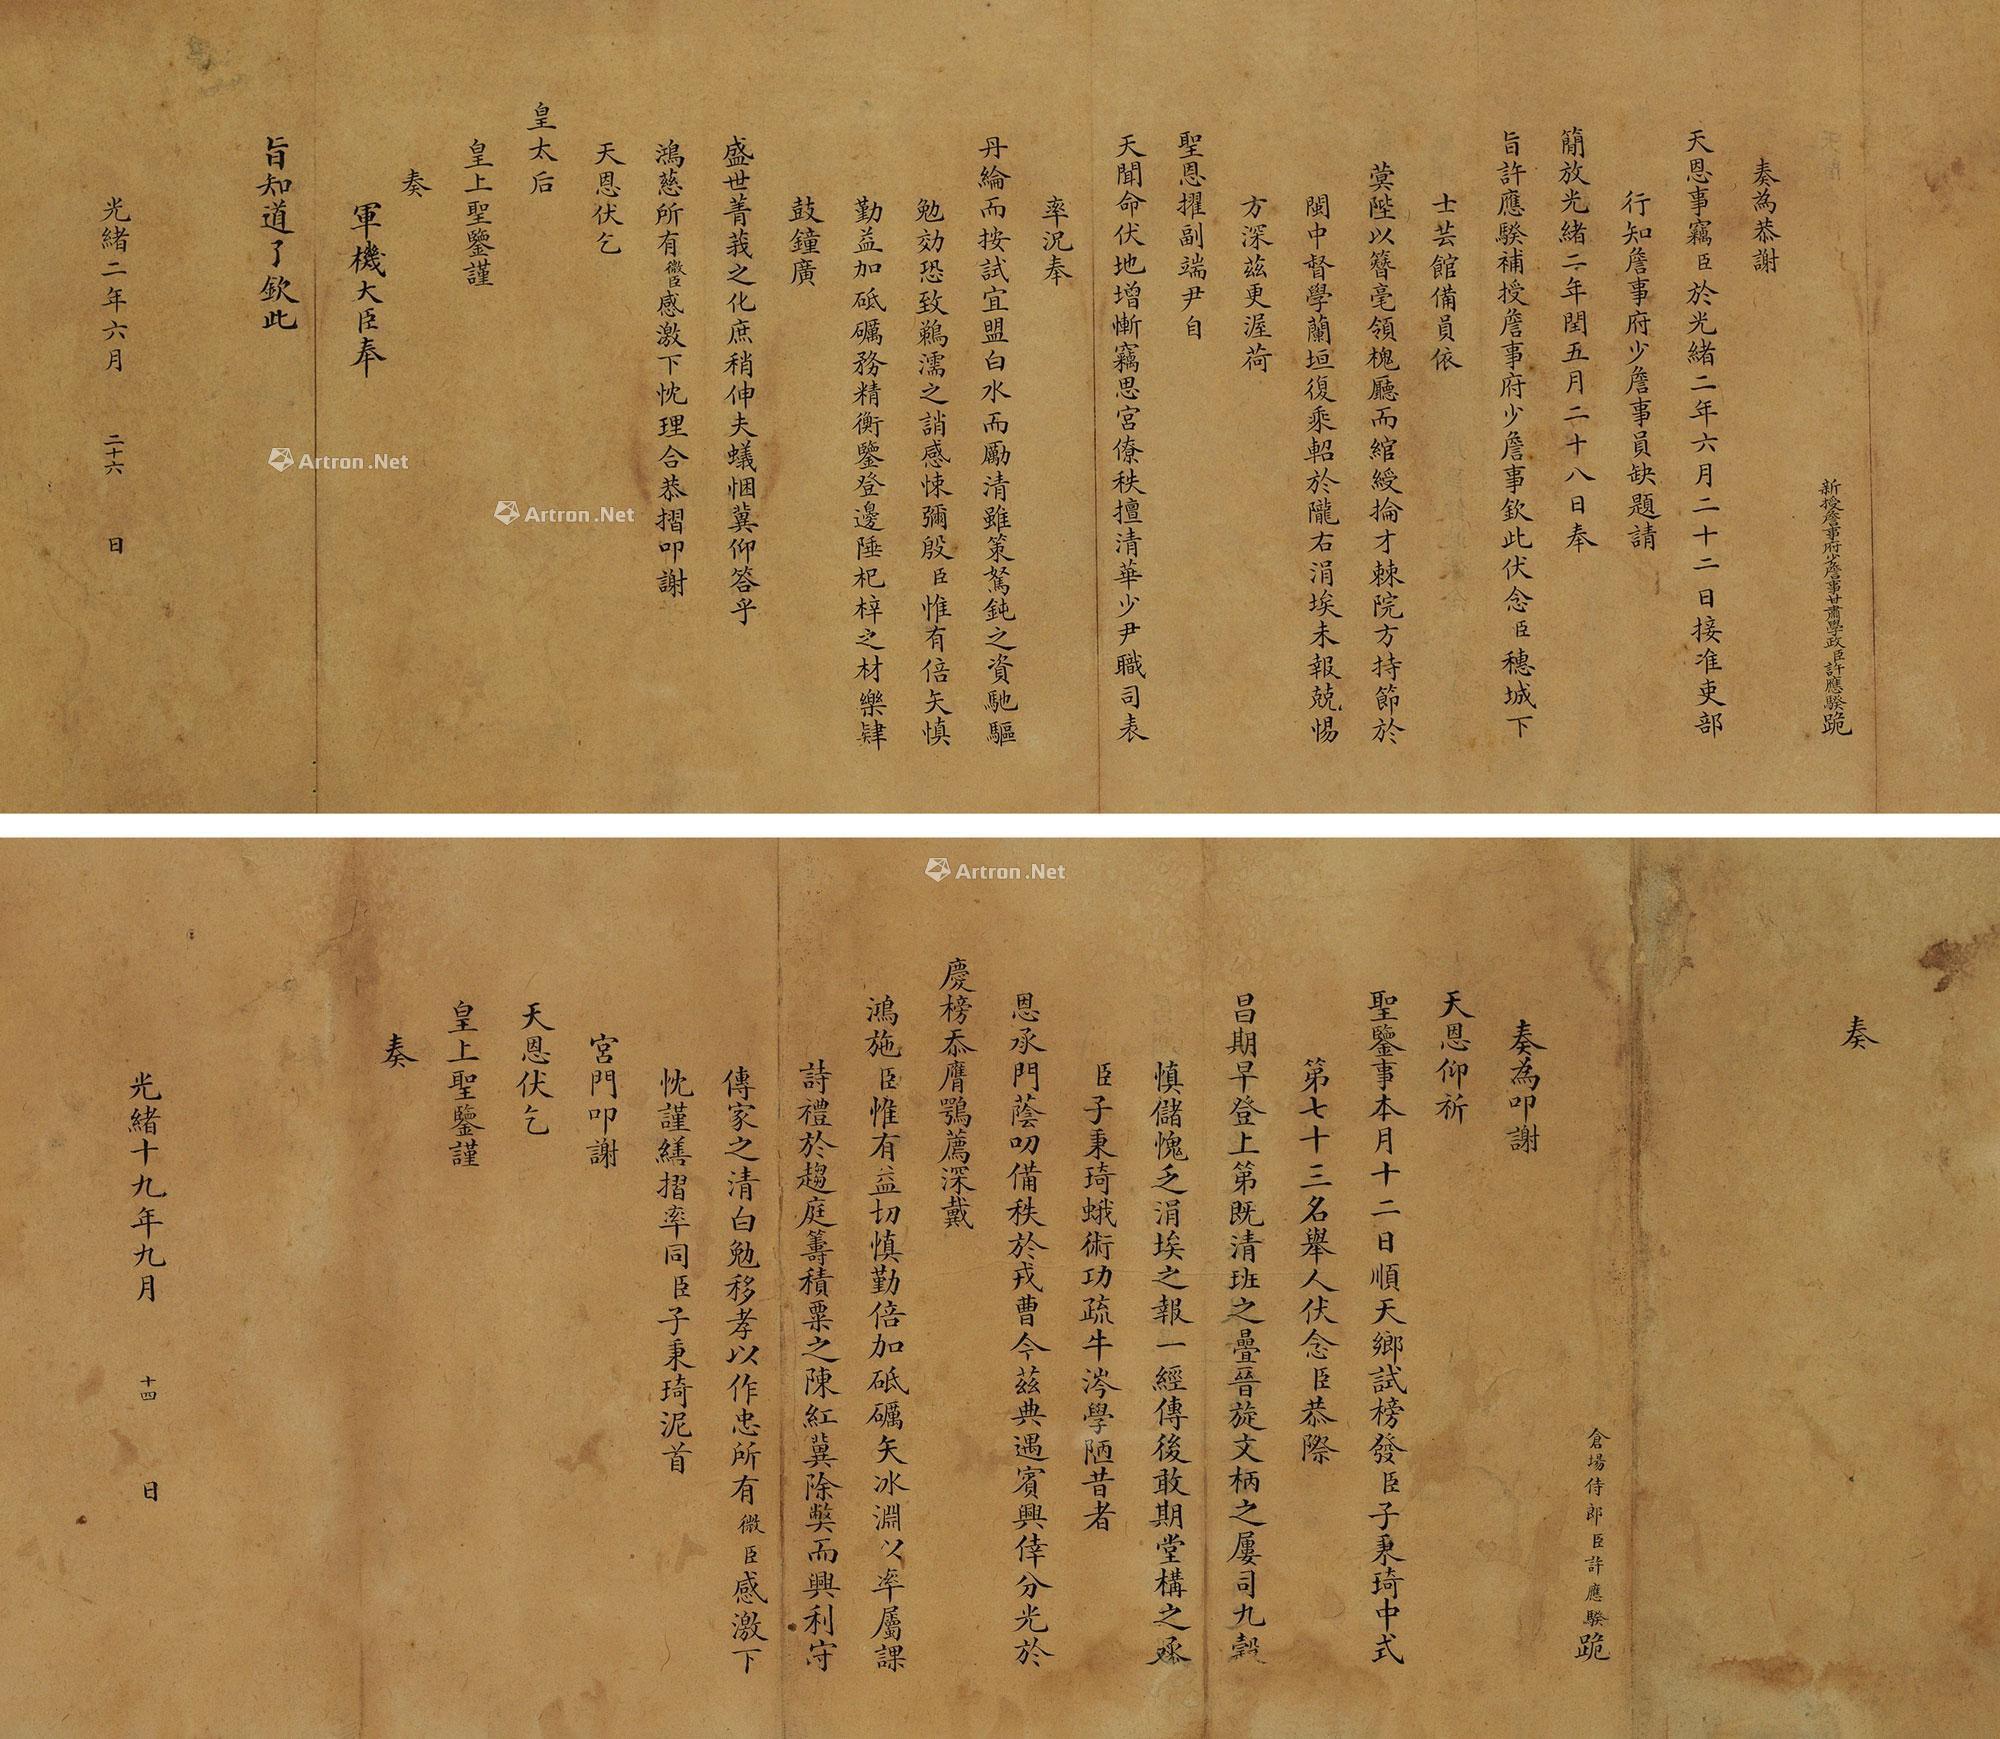 新授詹事府少詹事甘肅學政臣許應騤跪
奏為恭謝
天恩事竊臣於光緒二年六月二十二日接准吏部
行知詹事府少詹事員缺題請
簡放光緒二年閏五月二十八日奉
旨許應騤補授詹事府少詹事欽此伏念臣穗城下
士芸館備員依
蓂陛以簪毫領槐廳而綰綬掄才棘院方持節於
閩中督學蘭垣復乘軺於隴右涓埃未報兢惕
方深茲更渥荷
聖恩擢副端尹自
天聞命伏地增慚竊思宮僚秩擅清華少尹職司表
率況奉
丹綸而按試宜盟白水而勵清雖策駑鈍之資馳驅
勉効恐致鵜濡之誚感悚彌殷臣惟有倍矢慎
勤益加砥礪務精衡鑒登邊陲杞梓之材樂肄
鼓鐘廣
盛世菁莪之化庶稍伸夫蟻悃冀仰答乎
鴻慈所有微臣感激下忱理合恭摺叩謝
天恩伏乞
皇太后
皇上聖鑒謹
奏
軍機大臣奉
旨知道了欽此
光緒二年六月 二十六 日
Artron.Net
Artron.Net
Artron.Net
奏
倉場侍郎臣許應騤跪
奏為叩謝
天恩仰祈
聖鑒事本月十二日順天鄉試榜發臣子秉琦中式
第七十三名舉人伏念臣恭際
昌期早登上第既清班之疊晉旋文柄之屢司九穀
慎儲愧乏涓埃之報一經傳後敢期堂構之承
臣子秉琦蛾術功疏牛涔學陋昔者
恩承門蔭叨備秩於戎曹今茲典遇賓興倖分光於
慶榜忝膺鶚薦深戴
鴻施臣惟有益切慎勤倍加砥礪矢冰淵以率屬課
詩禮於趨庭籌積粟之陳紅冀除弊而興利守
傳家之清白勉移孝以作忠所有微臣感激下
忱謹繕摺率同臣子秉琦泥首
宮門叩謝
天恩伏乞
皇上聖鑒謹
奏
光緒十九年九月 十四 日